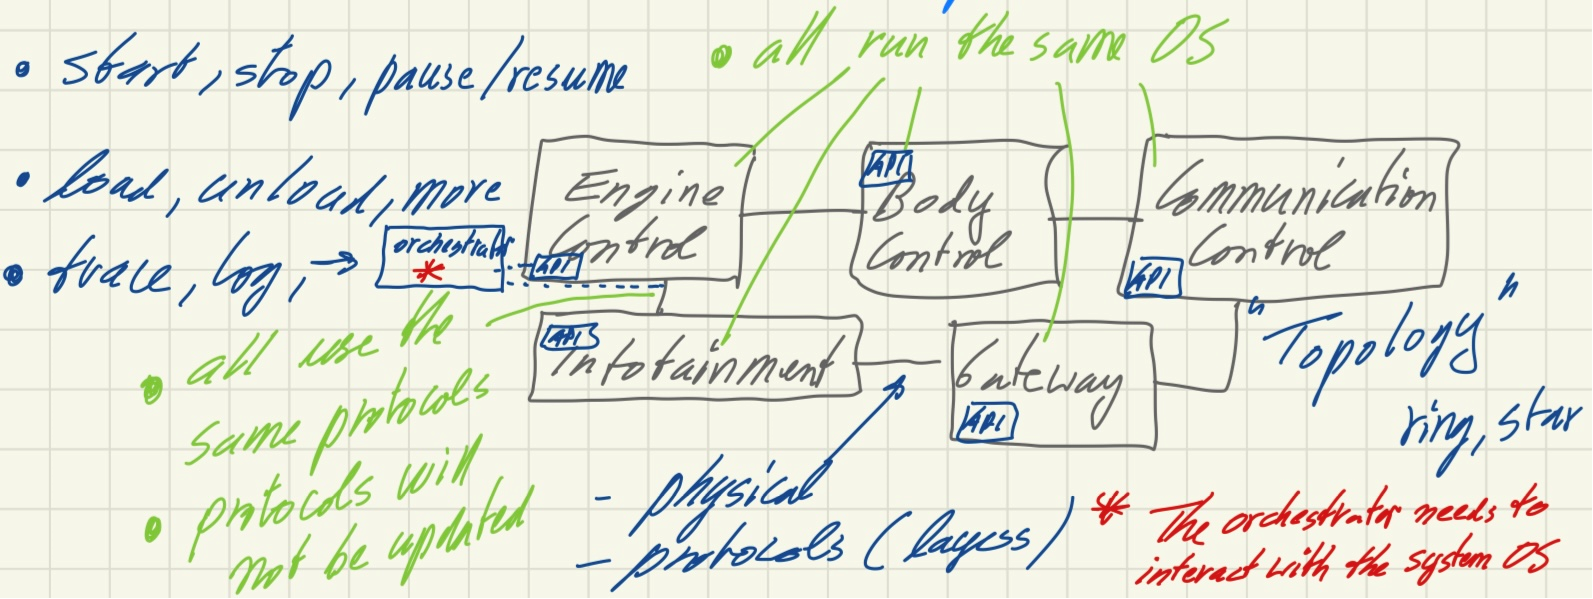 • start, stop, pause/resume
• all run the same OS
• load, unload, more
• trace, log, →
orchestrator
*
API
Engine
Control
API
Body
Control
Communication
Control
API
API
Infotainment
Gateway
API
"Topology"
ring, star
• all use the
same protocols
• protocols will
not be updated
- physical
- protocols (layers)
* The orchestrator needs to
interact with the system OS